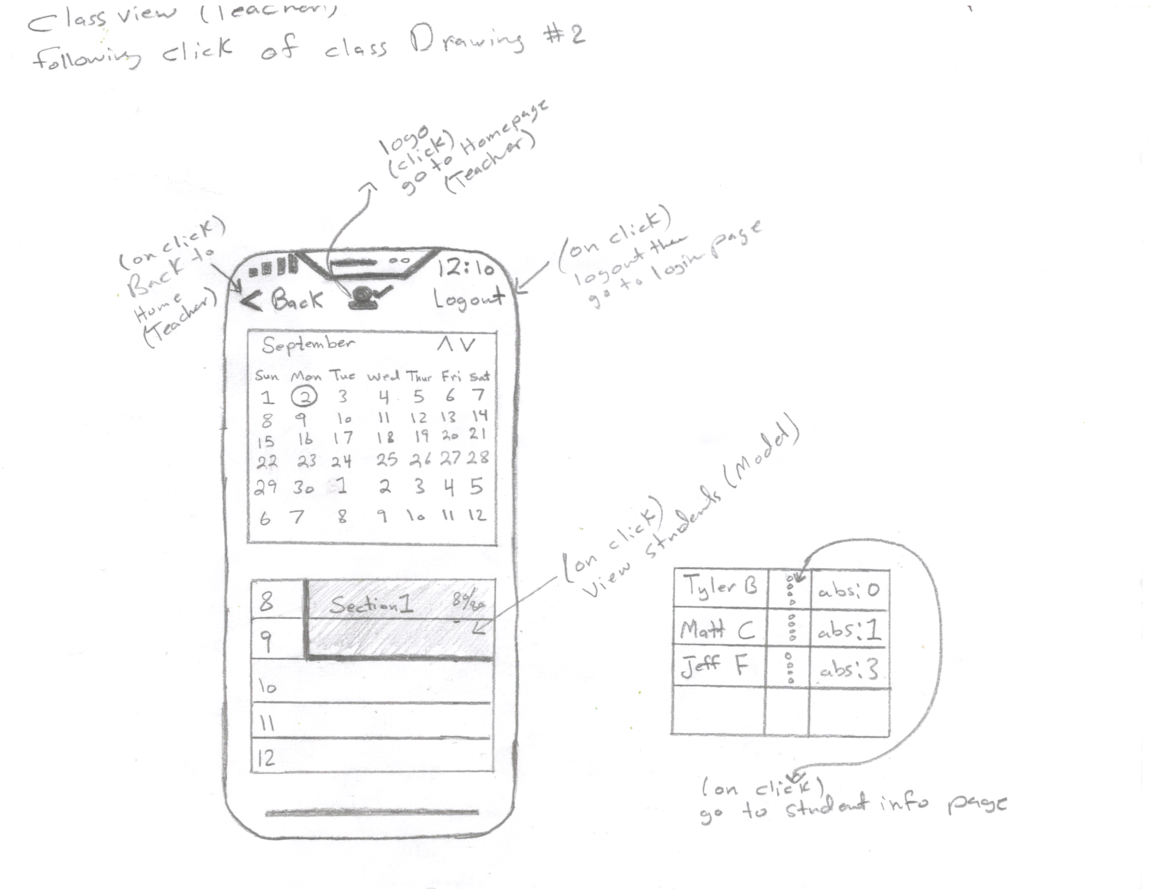 Class view (Teacher)
following click of class Drawing #2
logo
(click)
go to Homepage
(Teacher)
(on click)
Back to
Home
(Teacher)
(on click)
logout then
go to login page
12:10
< Back
Logout
September
Sun Mon Tue Wed Thur Fri Sat
1 2 3 4 5 6 7
8 9 10 11 12 13 14
15 16 17 18 19 20 21
22 23 24 25 26 27 28
29 30 1 2 3 4 5
6 7 8 9 10 11 12
(on click)
View students (Model)
8 Section 1
9
10
11
12
Tyler B abs:0
Matt C abs:1
Jeff F abs:3
(on click)
go to student info page